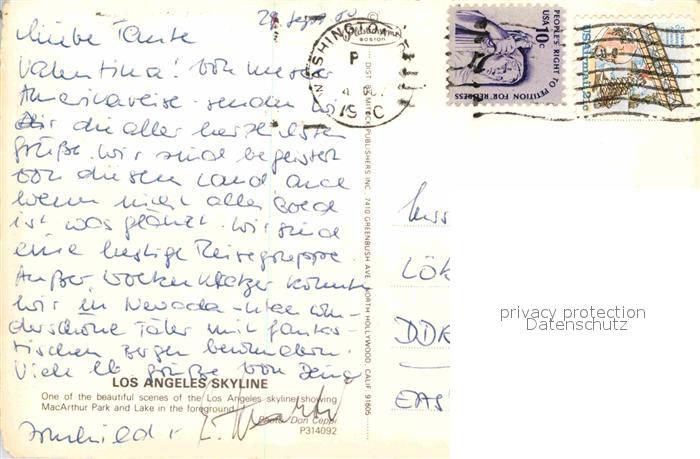 29. Sept. 80
Liebe Tante
Valentina! Von unserer
Amerikareise senden wir
Dir die allerherzlichsten
Grüße. Wir sind begeistert
von diesem Land auch
wenn nicht alles Gold
ist was glänzt. Wir sind
eine lustige Reisegruppe.
Außer Wolkenkratzer konnten
wir in Nevada - Utah wun-
derschöne Täler mit fantas-
tischen Bergen bewundern.
Viele lb. Grüße von Deiner
LOS ANGELES SKYLINE
One of the beautiful scenes of the Los Angeles skyline showing
MacArthur Park and Lake in the foreground.
Photo: Don Ceppi
P314092
DIST. BY MITOCK PUBLISHERS INC., 7410 GREENBUSH AVE. NORTH HOLLYWOOD, CALIF. 91605
BOSTON
WASHINGTON
PEOPLE'S RIGHT
TO PETITION FOR REDRESS
USA 10c
LÖK
DDR
EAS
privacy protection
Datenschutz